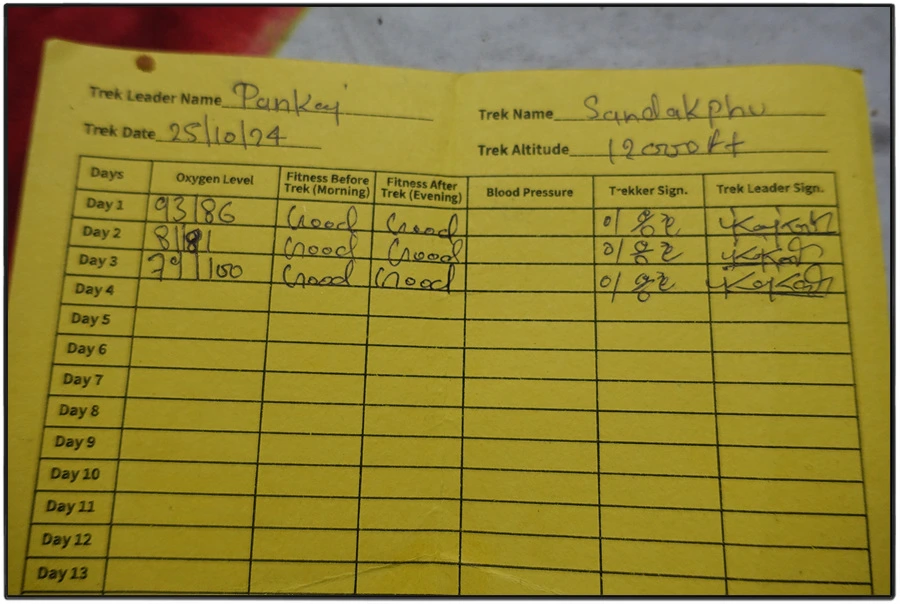 Trek Leader Name Pankaj
Trek Name Sandakphu
Trek Date 25/10/24
Trek Altitude 12000ft
Days Oxygen Level Fitness Before Trek (Morning) Fitness After Trek (Evening) Blood Pressure Trekker Sign. Trek Leader Sign.
Day 1 93/86 Good Good 이용호
Day 2 81/81 Good Good 이용호
Day 3 79/100 Good Good 이용호
Day 4
Day 5
Day 6
Day 7
Day 8
Day 9
Day 10
Day 11
Day 12
Day 13